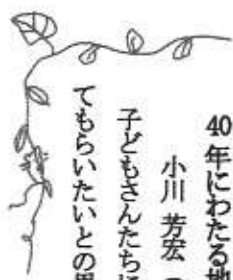 40年にわたる
小川 芳宏
子どもさんたちに
てもらいたいとの